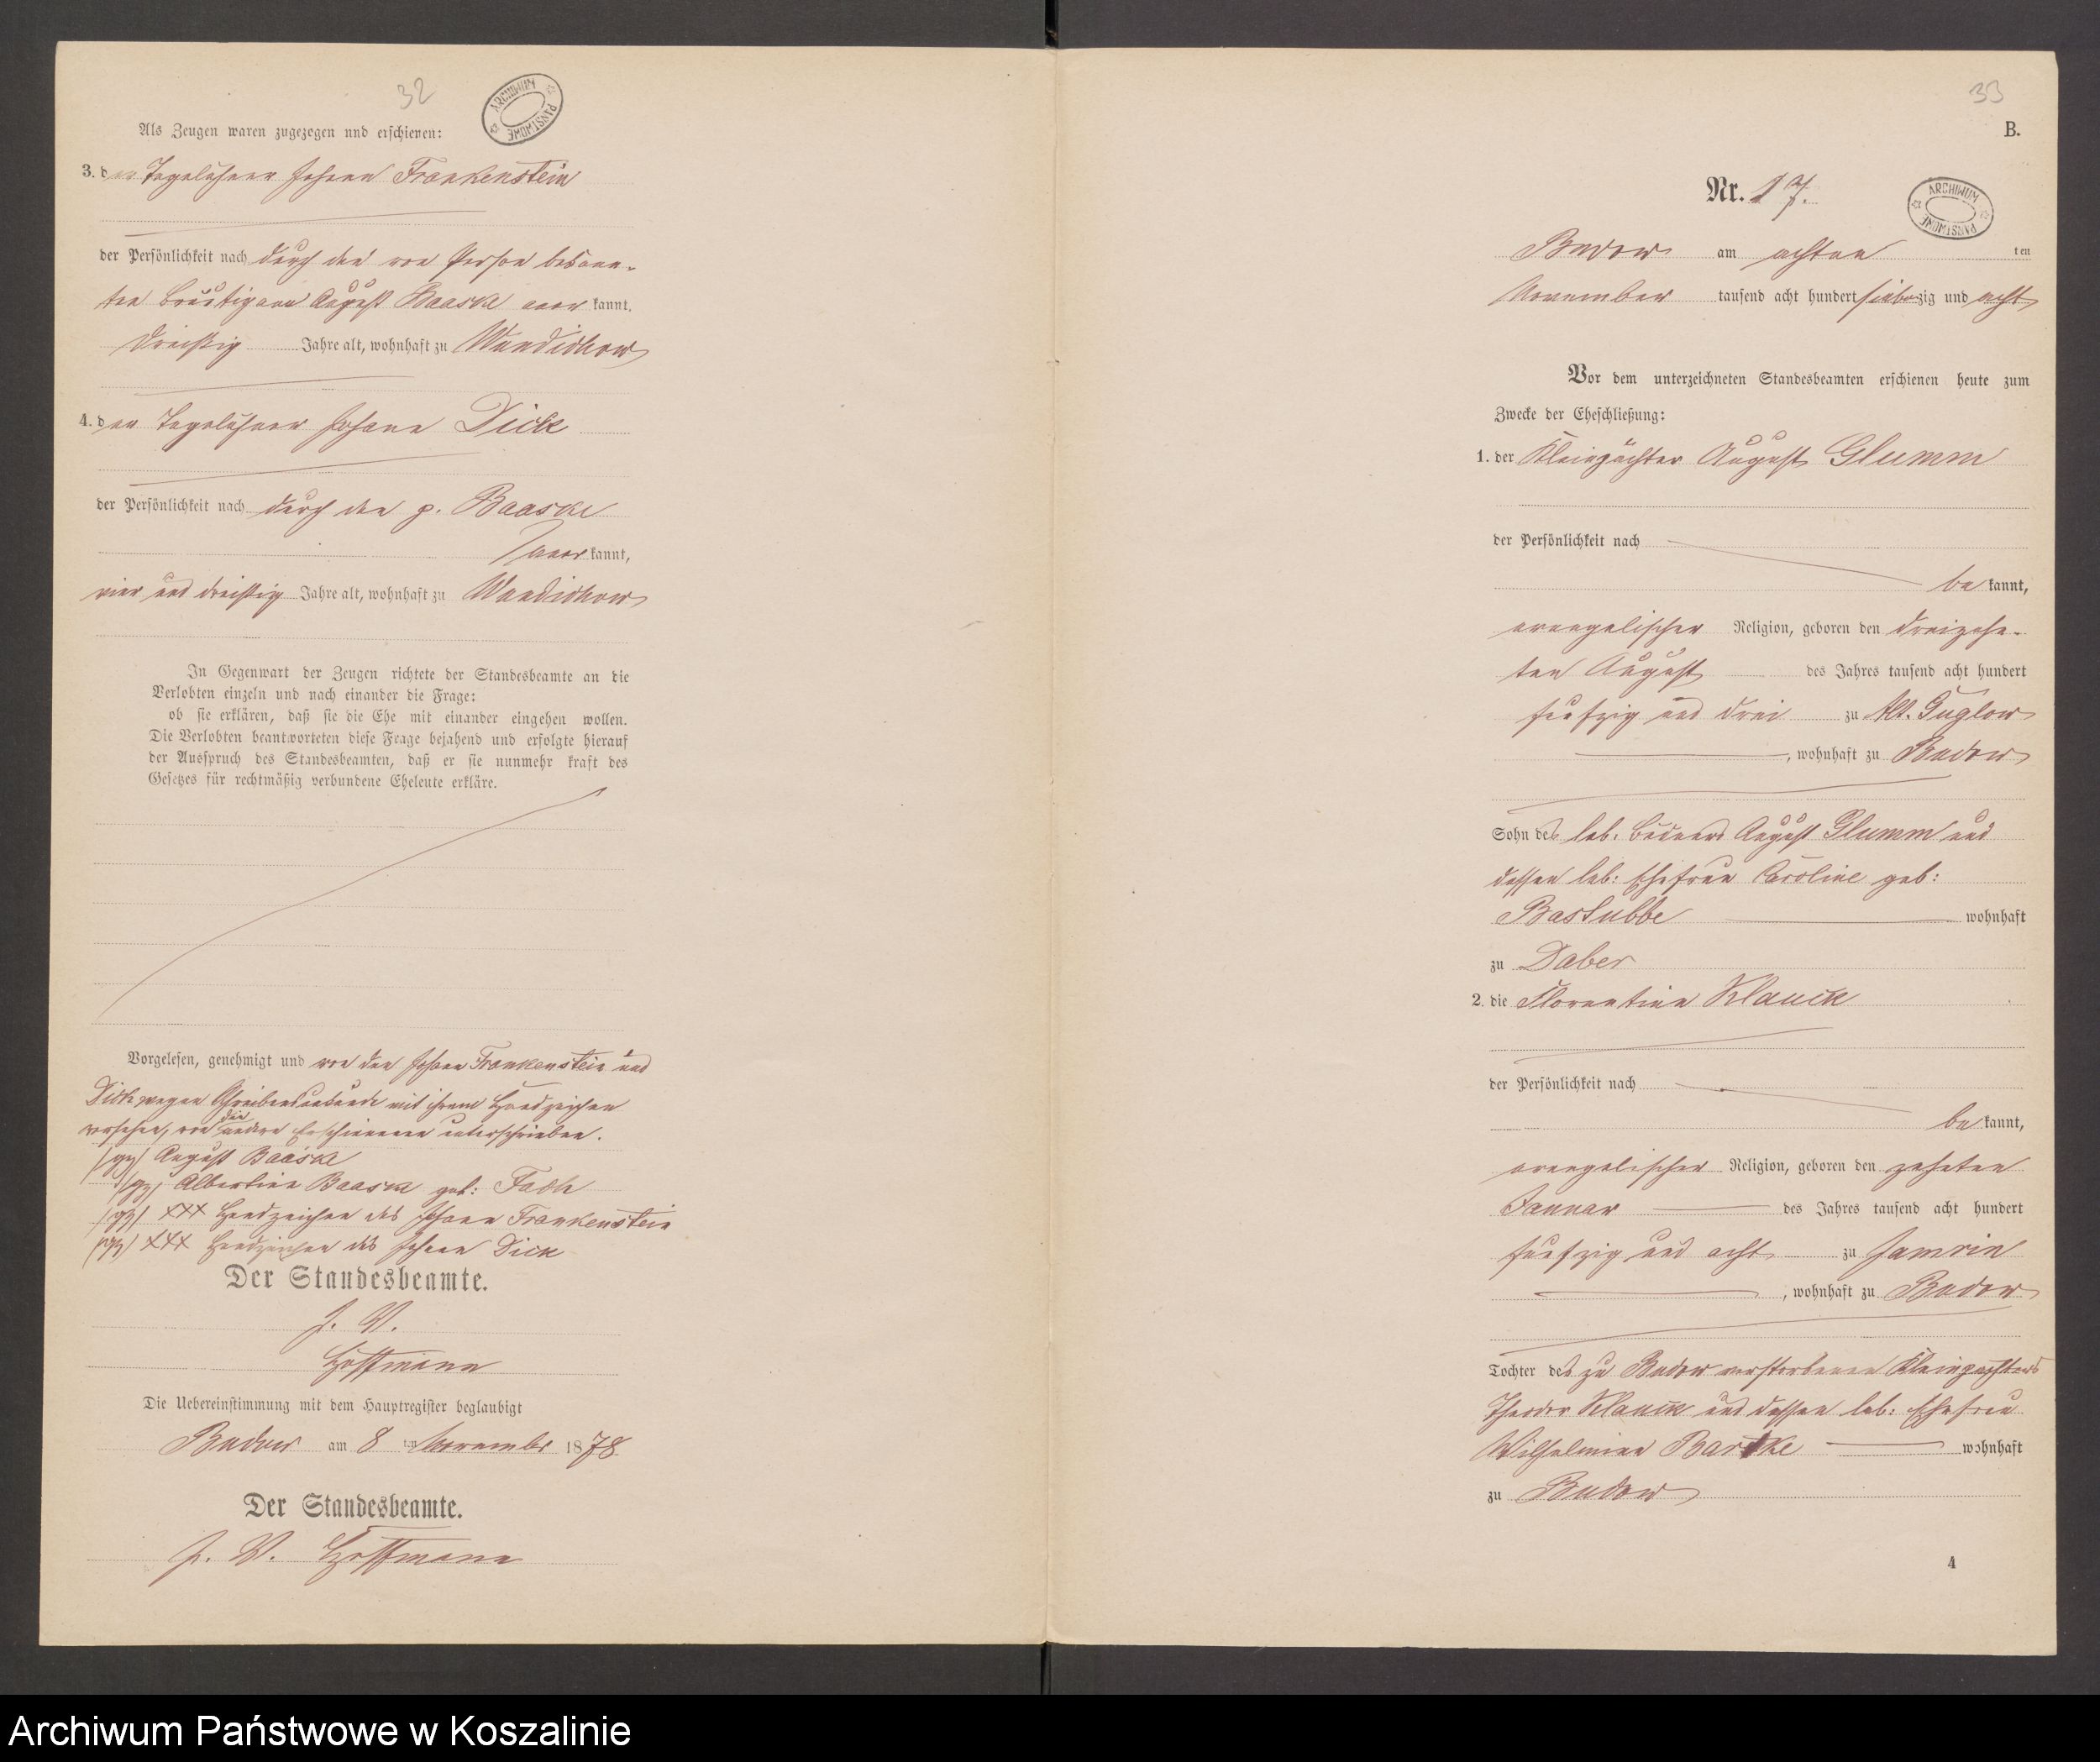 32
ARCHIWUM PAŃSTWOWE
Als Zeugen waren zugezogen und erschienen:
3. der Tagelöhner Johann Frankenstein
der Persönlichkeit nach durch den von Person bekann-
ten Bräutigam August Baaske aner kannt,
dreißig Jahre alt, wohnhaft zu Wundichow
4. der Tagelöhner Johann Dick
der Persönlichkeit nach durch den p. Baaske
aner kannt,
vier und dreißig Jahre alt, wohnhaft zu Wundichow
In Gegenwart der Zeugen richtete der Standesbeamte an die
Verlobten einzeln und nach einander die Frage:
ob sie erklären, daß sie die Ehe mit einander eingehen wollen.
Die Verlobten beantworteten diese Frage bejahend und erfolgte hierauf
der Ausspruch des Standesbeamten, daß er sie nunmehr kraft des
Gesetzes für rechtmäßig verbundene Eheleute erkläre.
Vorgelesen, genehmigt und von den Johann Frankenstein und
Dick wegen Schreibensunkunde mit ihrem Handzeichen
versehen, von den andern Erschienenen unterschrieben.
(gz) August Baaske
(gz) Albertine Baaske geb: Fach
(gz) XXX Handzeichen des Johann Frankenstein
(gz) XXX Handzeichen des Johann Dick
Der Standesbeamte.
J. V.
Hoffmann
Die Uebereinstimmung mit dem Hauptregister beglaubigt
Budow am 8 ten November 1878.
Der Standesbeamte.
J. V. Hoffmann
33
B.
Nr. 17.
ARCHIWUM PAŃSTWOWE
Budow am achten ten
November tausend acht hundert siebenzig und acht
Vor dem unterzeichneten Standesbeamten erschienen heute zum
Zwecke der Eheschließung:
1. der Kleinpächter August Glumm
der Persönlichkeit nach
be kannt,
evangelischer Religion, geboren den dreizehn-
ten August des Jahres tausend acht hundert
fünfzig und drei zu Alt. Guglow
, wohnhaft zu Budow
Sohn des leb. Büdners August Glumm und
dessen leb: Ehefrau Caroline geb:
Bastubbe wohnhaft
zu Daber
2. die Florentine Klauck
der Persönlichkeit nach
be kannt,
evangelischer Religion, geboren den zehnten
Januar des Jahres tausend acht hundert
fünfzig und acht zu Jamrin
, wohnhaft zu Budow
Tochter des zu Budow verstorbenen Kleinpächters
Theodor Klauck und dessen leb: Ehefrau
Wilhelmine Bartke wohnhaft
zu Budow
4
Archiwum Państwowe w Koszalinie